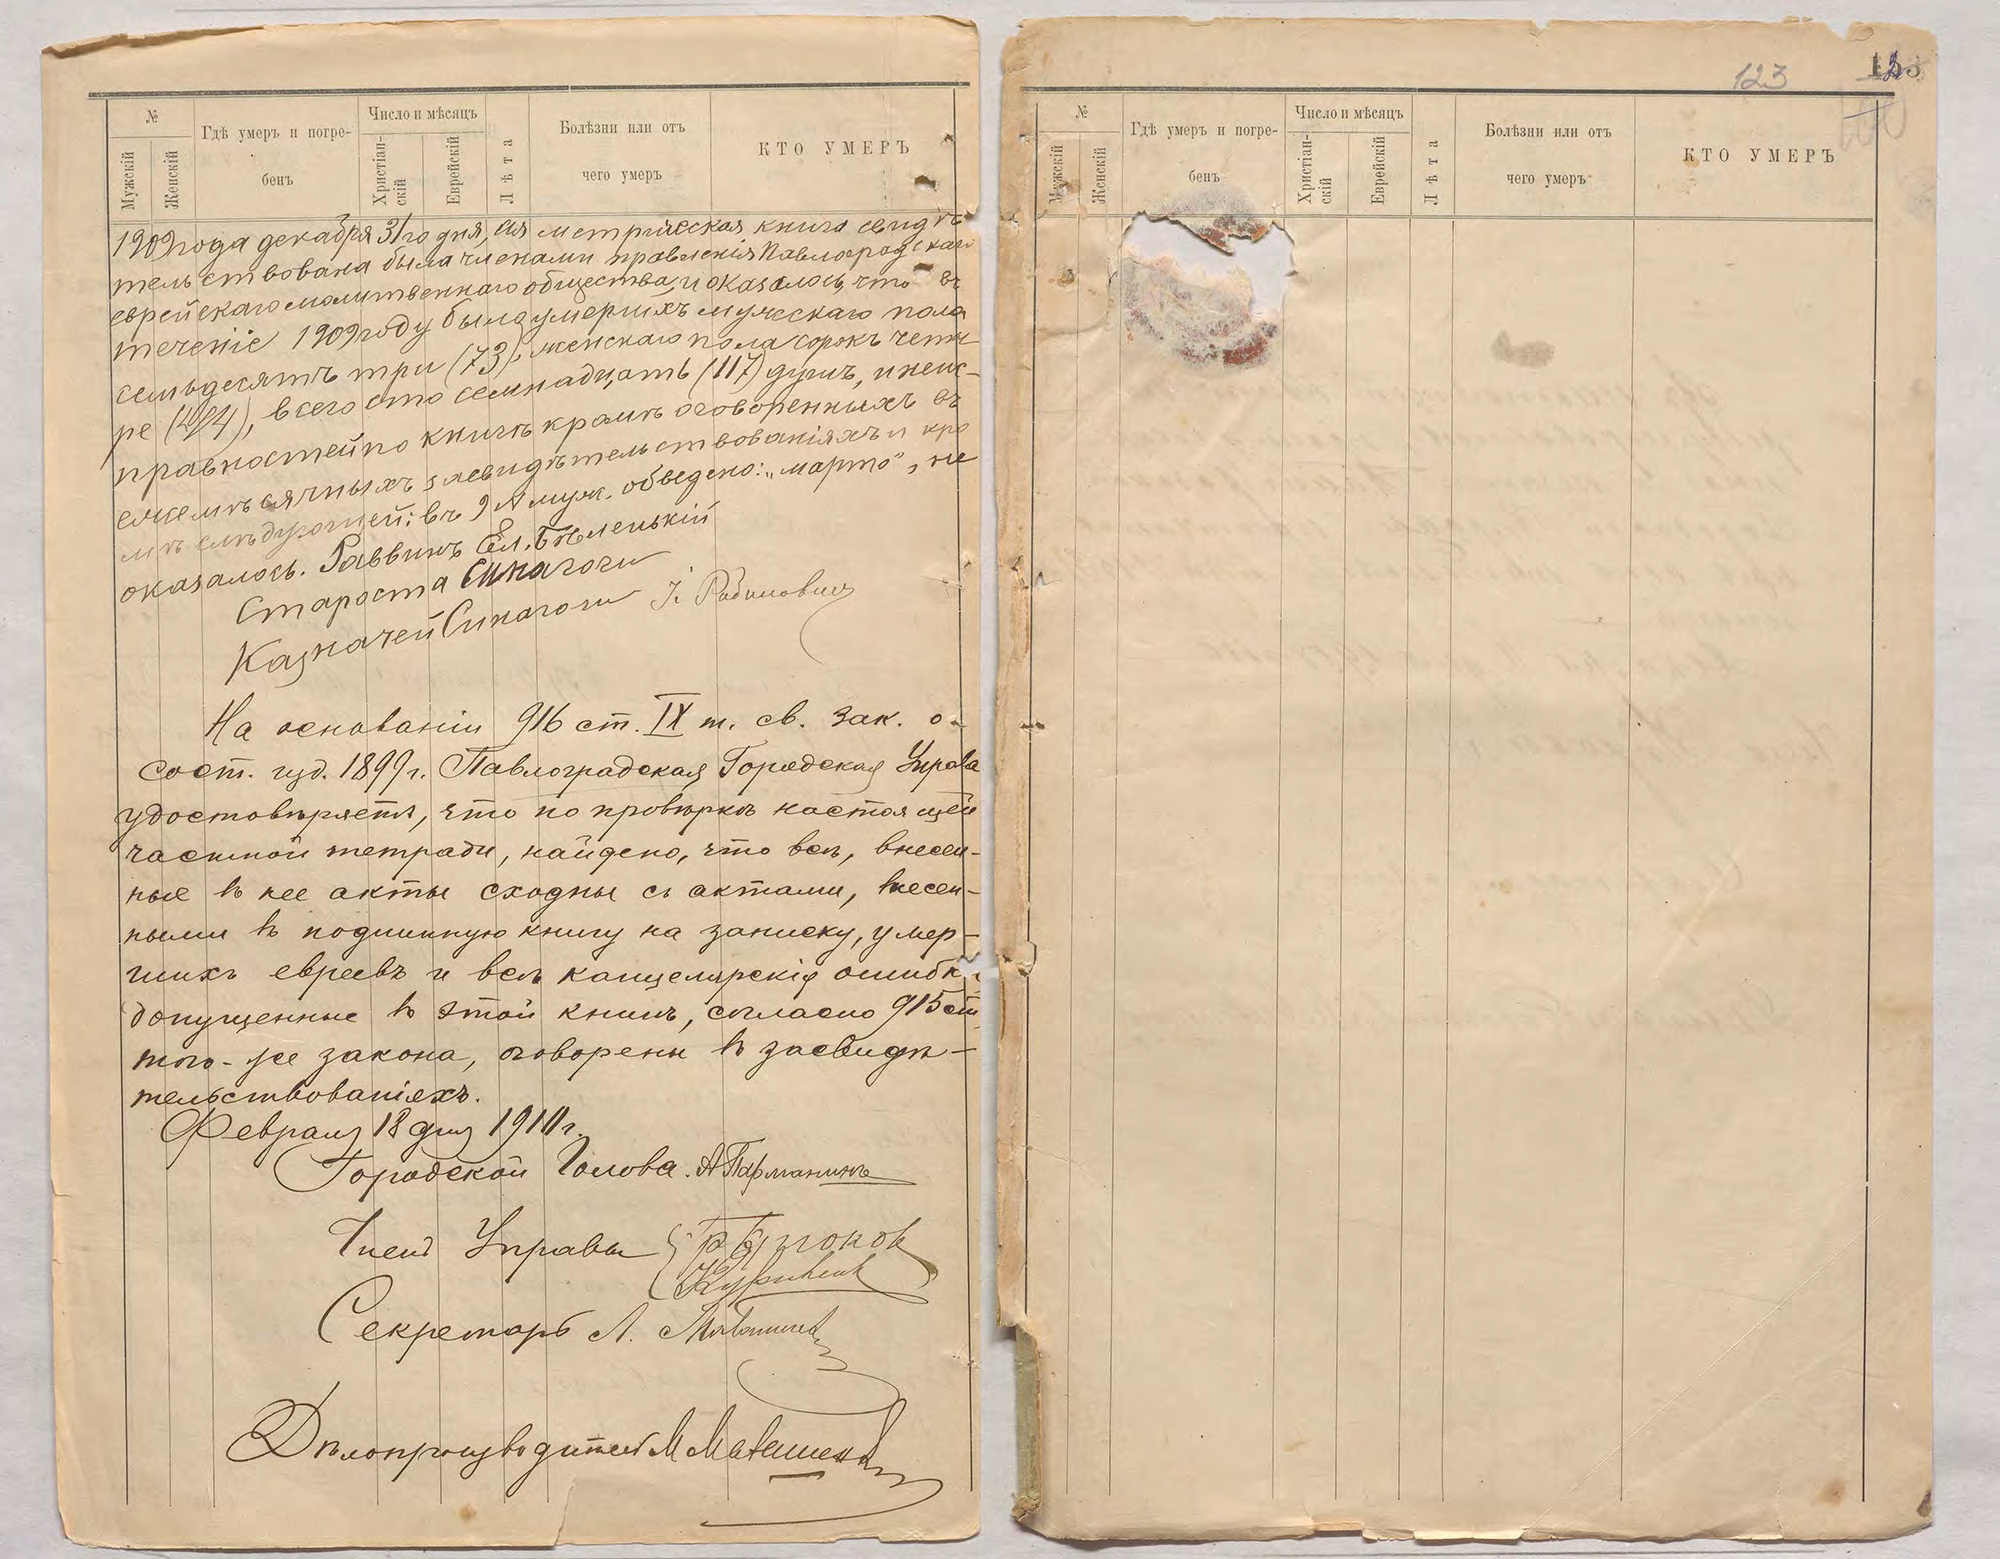 №
Мужскій
Женскій
Гдѣ умеръ и погре-
бенъ
Число и мѣсяцъ
Христіан-
скій
Еврейскій
Лѣта
Болѣзни или отъ
чего умеръ
КТО УМЕРЪ
1909 года декабря 31го дня, сія метрическая книга свидѣ
тельствована была членами правленія Павлоградскаго
еврейскаго молитвеннаго общества, и оказалось, что въ
теченіе 1909 году было умершихъ мужскаго пола
семьдесятъ три (73), женскаго пола сорокъ четы-
ре (44), всего сто семнадцать (117) душъ, и неис-
правностей по книгѣ кромѣ оговоренныхъ въ
ежемѣсячныхъ засвидѣтельствованіяхъ и кро
мѣ слѣдующей: въ 9 № муж. обведено: „марта", не
оказалось. Раввинъ Ел. Бѣленькій
Староста Синагоги
Казначей Синагоги І. Рабиновичъ
На основаніи 916 ст. IX т. св. зак. о
сост. изд. 1899 г. Павлоградская Городская Управа
удостовѣряетъ, что по провѣркѣ настоящей
частной тетради, найдено, что всѣ, внесен-
ные въ нее акты сходны съ актами, внесен-
ными въ подлинную книгу на записку, умер-
шихъ евреевъ и всѣ канцелярскія ошибки
допущенные въ этой книгѣ, согласно 915 ст
того-же закона, оговорены въ засвидѣ-
тельствованіяхъ.
Февраля 18 дня 1910 г.
Городской Голова. А
Члены Управы
Секретарь Л.
Дѣлопроизводитель М
123
№
Мужскій
Женскій
Гдѣ умеръ и погре-
бенъ
Число и мѣсяцъ
Христіан-
скій
Еврейскій
Лѣта
Болѣзни или отъ
чего умеръ
КТО УМЕРЪ